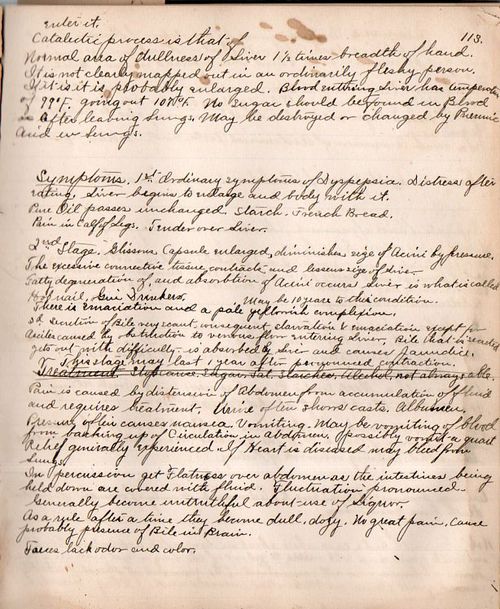 enter it.
113.
Catalectic process is that of
Normal area of dullness of Liver 1½ times breadth of hand.
It is not clearly mapped out in an ordinarily fleshy person.
If it is it is probably enlarged. Blood entering Liver has temperature
of 99°F. going out 107°F. No Sugar should be found in Blood
after leaving Lungs. May be destroyed or changed by Pneumic
Acid in Lungs.
Symptoms. 1st Ordinary symptoms of Dyspepsia. Distress after
eating. Liver begins to enlarge and body with it.
Pure Oil passes unchanged. Starch. French Bread.
Pain in calf of legs. Tender over Liver.
2nd Stage. Glissons Capsule enlarged, diminishes size of Acini by pressure.
The excessive connective tissue, contracts and lessens size of Liver
Fatty degeneration of, and absorbtion of Acini occurs. Liver is what is called
Hobnail, Gin Drinkers. May be 10 years to this condition.
There is emaciation and a pale yellowish complexion.
3d. Secretion of Bile very scant, consequent starvation & emaciation except for
Ascites caused by obstruction to venous flow entering Liver. Bile that is secreted
gets out with difficulty, is absorbed by Liver and causes Jaundice.
This stage may last 1 year after pronounced contraction.
Treatment. Sugar. Fat. Starches. Alcohol, not always able.
Pain is caused by distension of Abdomen from accumulation of fluid
and requires treatment. Urine often shows casts. Albumen.
Pressure often causes nausea. Vomiting. May be vomiting of blood
from backing up of Circulation in Abdomen, possibly vomit a quart
Relief generally experienced. If Heart is diseased may bleed from
Lungs.
On percussion get Flatness over abdomen as the intestines being
held down are covered with fluid. Fluctuation pronounced.
Generally become untruthful about use of Liquor.
As a rule after a time they become dull, dozy. No great pain. Cause
probably presence of Bile in Brain.
Faeces lack odor and color.